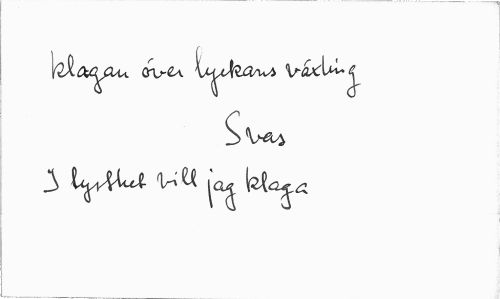 klagan över lyckans växling
Svas
I tysthet vill jag klaga